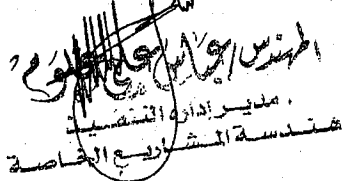 المهندس / عباس علي
مدير إدارة التنفيذ
هندسة المشاريع الخاصة